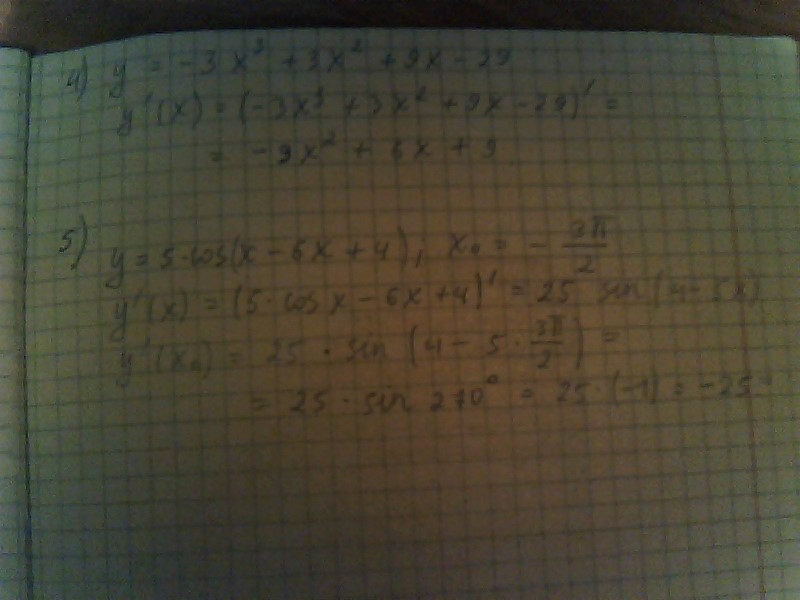 4) y = -3x³ + 3x² + 9x - 29
y'(x) = (-3x³ + 3x² + 9x - 29)' =
= -9x² + 6x + 9
5) y = 5·cos(x - 6x + 4), x₀ = - 3π/2
y'(x) = (5·cos x - 6x + 4)' = 25 sin(4 - 5x)
y'(x₀) = 25 · sin (4 - 5 · 3π/2) =
= 25 · sin 270° = 25·(-1) = -25